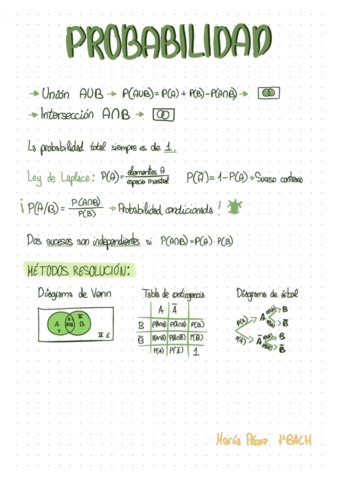 PROBABILIDAD
→ Unión A∪B → P(A∪B)=P(A)+P(B)-P(A∩B) →
→ Intersección A∩B →
La probabilidad total siempre es de 1.
Ley de Laplace: P(A)= elementos A / espacio muestral P(Ā)=1-P(A)→Suceso contrario
¡ P(A/B)= P(A∩B) / P(B) → Probabilidad condicionada !
Dos sucesos son independientes si P(A∩B)=P(A)·P(B)
MÉTODOS RESOLUCIÓN:
Diagrama de Venn Tabla de contingencia Diagrama de árbol
A B
A Ā
B P(A∩B) P(Ā∩B) P(B)
B̄ P(A∩B̄) P(Ā∩B̄) P(B̄)
P(A) P(Ā) 1
P(A) A B B̄
P(Ā) Ā B B̄
María Pérez 1ºBACH